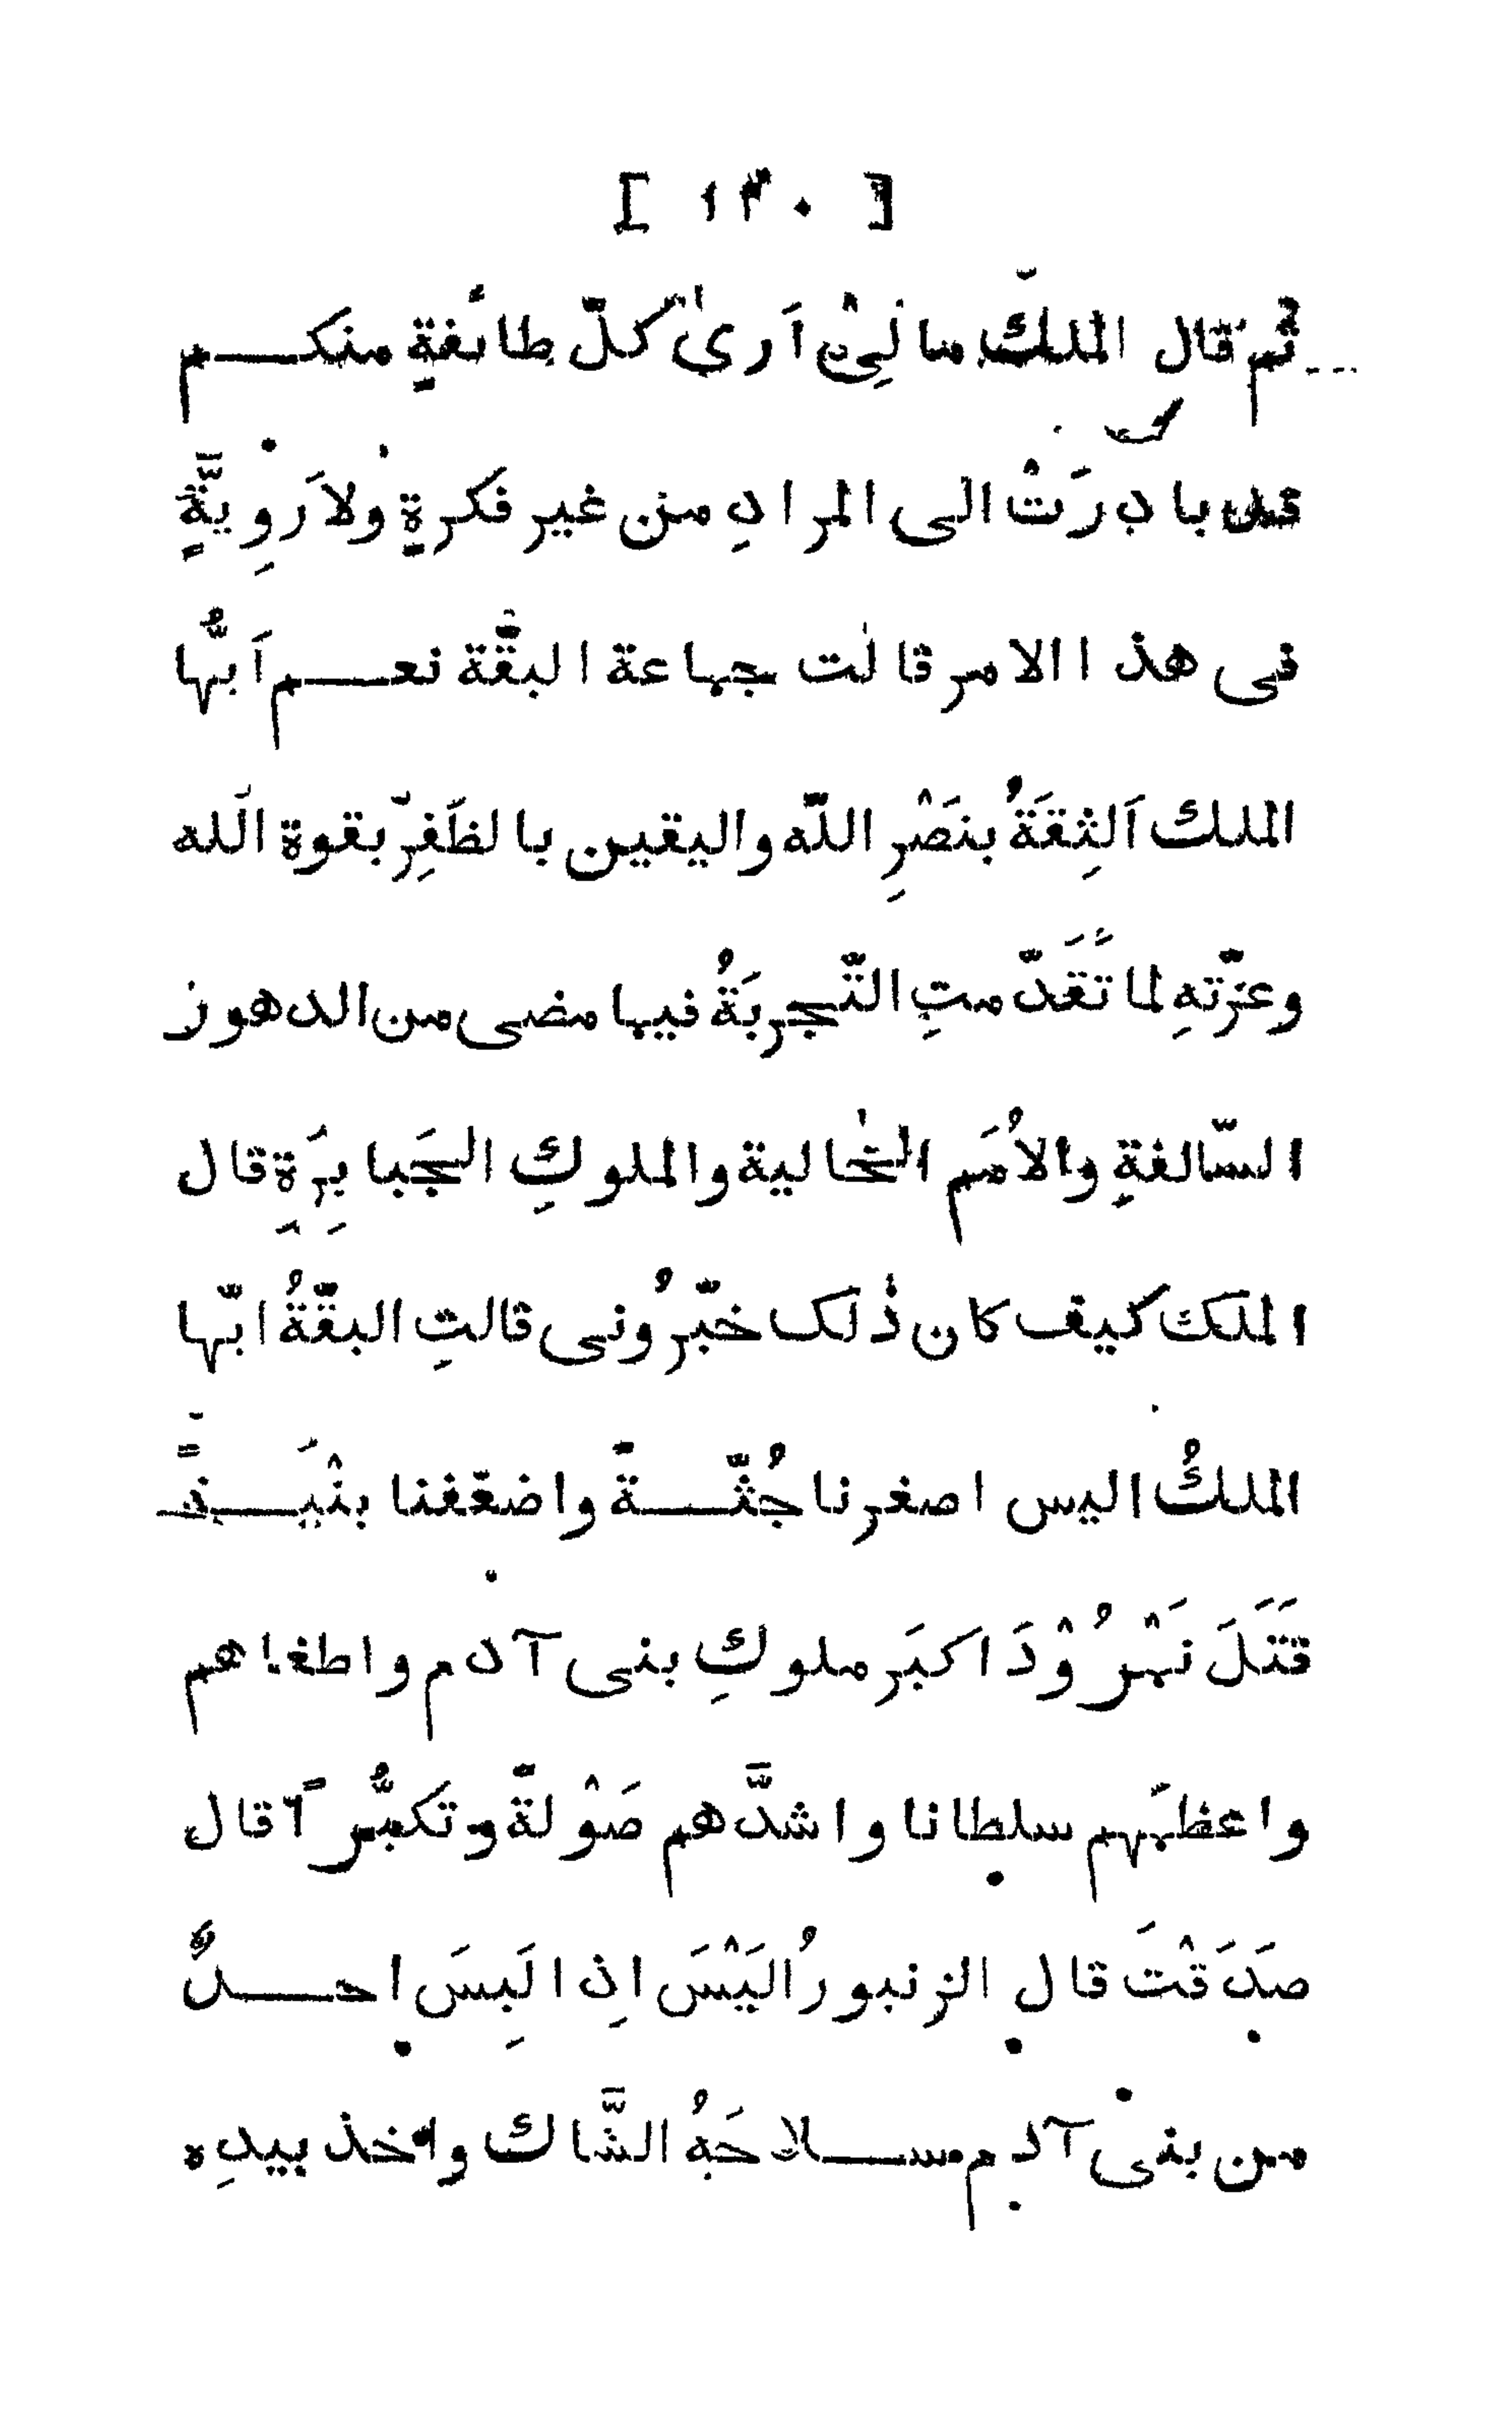 [ ١٣٠ ]
ثم قال الملكّ ما لِيْ اَرىٰ كلّ طائفةٍ منكم
قد بادرَتْ الى المرادِ من غير فكرةٍ ولا رَوِيَّةٍ
فى هذا الامر قالت جماعة البقّة نعم اَيُّها
الملك اَلثِقَةُ بنَصْرِ اللّه واليقين بالظَفِرّ بقوة الَله
وعزّتهِ لما تَقَدّمتِ التّجرِبَةُ فيما مضى من الدهور
السّالفةِ والاُمَم الخٰالية والملوكِ الجَبابِرَةِ قال
الملك كيف كان ذٰلك خبّرُونى قالتِ البقّةُ ايّها
الملكُ اليس اصغرنا جُثّةً واضعّفنا بِنْيَةً
قَتَلَ نَمْرُوْدَ اكبَر ملوكِ بنى آدم واطغاهم
واعظمَهم سلطانا واشدَّهم صَوْلةً وتكبُّراً قال
صَدَقْتَ قال الزنبورُ اليَسْ اذِا لَبِسَ احدٌ
من بنى آدم سلاحَهُ الشَّاك واخذ بيدِه